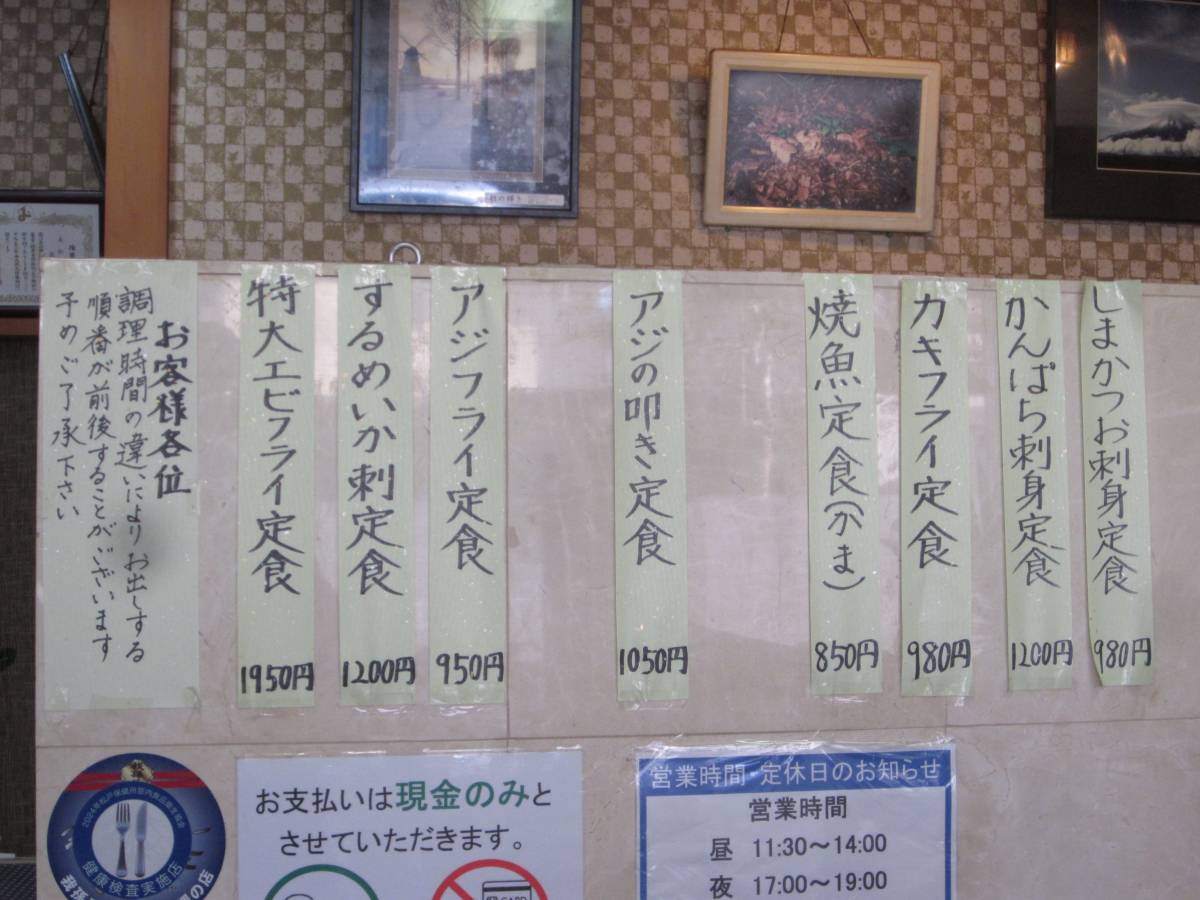 しまかつお刺身定食
980円
かんぱち刺身定食
1200円
カキフライ定食
980円
焼魚定食(かま)
850円
アジの叩き定食
1050円
アジフライ定食
950円
するめいか刺定食
1200円
特大エビフライ定食
1950円
お客様各位
調理時間の違いによりお出しする
順番が前後することがございます
予めご了承下さい
健康検査実施店
お支払いは現金のみと
させていただきます。
営業時間・定休日のお知らせ
営業時間
昼 11:30～14:00
夜 17:00～19:00